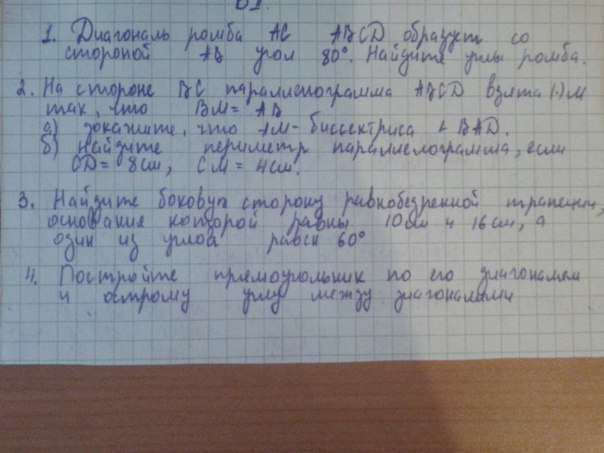 В1.
1. Диагональ ромба AC ABCD образует со
стороной AB угол 80°. Найдите углы ромба.
2. На стороне BC параллелограмма ABCD взята (·) M
так, что BM = AB
а) докажите, что AM - биссектриса ∠ BAD.
б) найдите периметр параллелограмма, если
CD = 8 см, CM = 4 см.
3. Найдите боковую сторону равнобедренной трапеции,
основание которой равны 10 см и 16 см, а
один из углов равен 60°
4. Постройте прямоугольник по его диагоналем
и острому углу между диагоналями